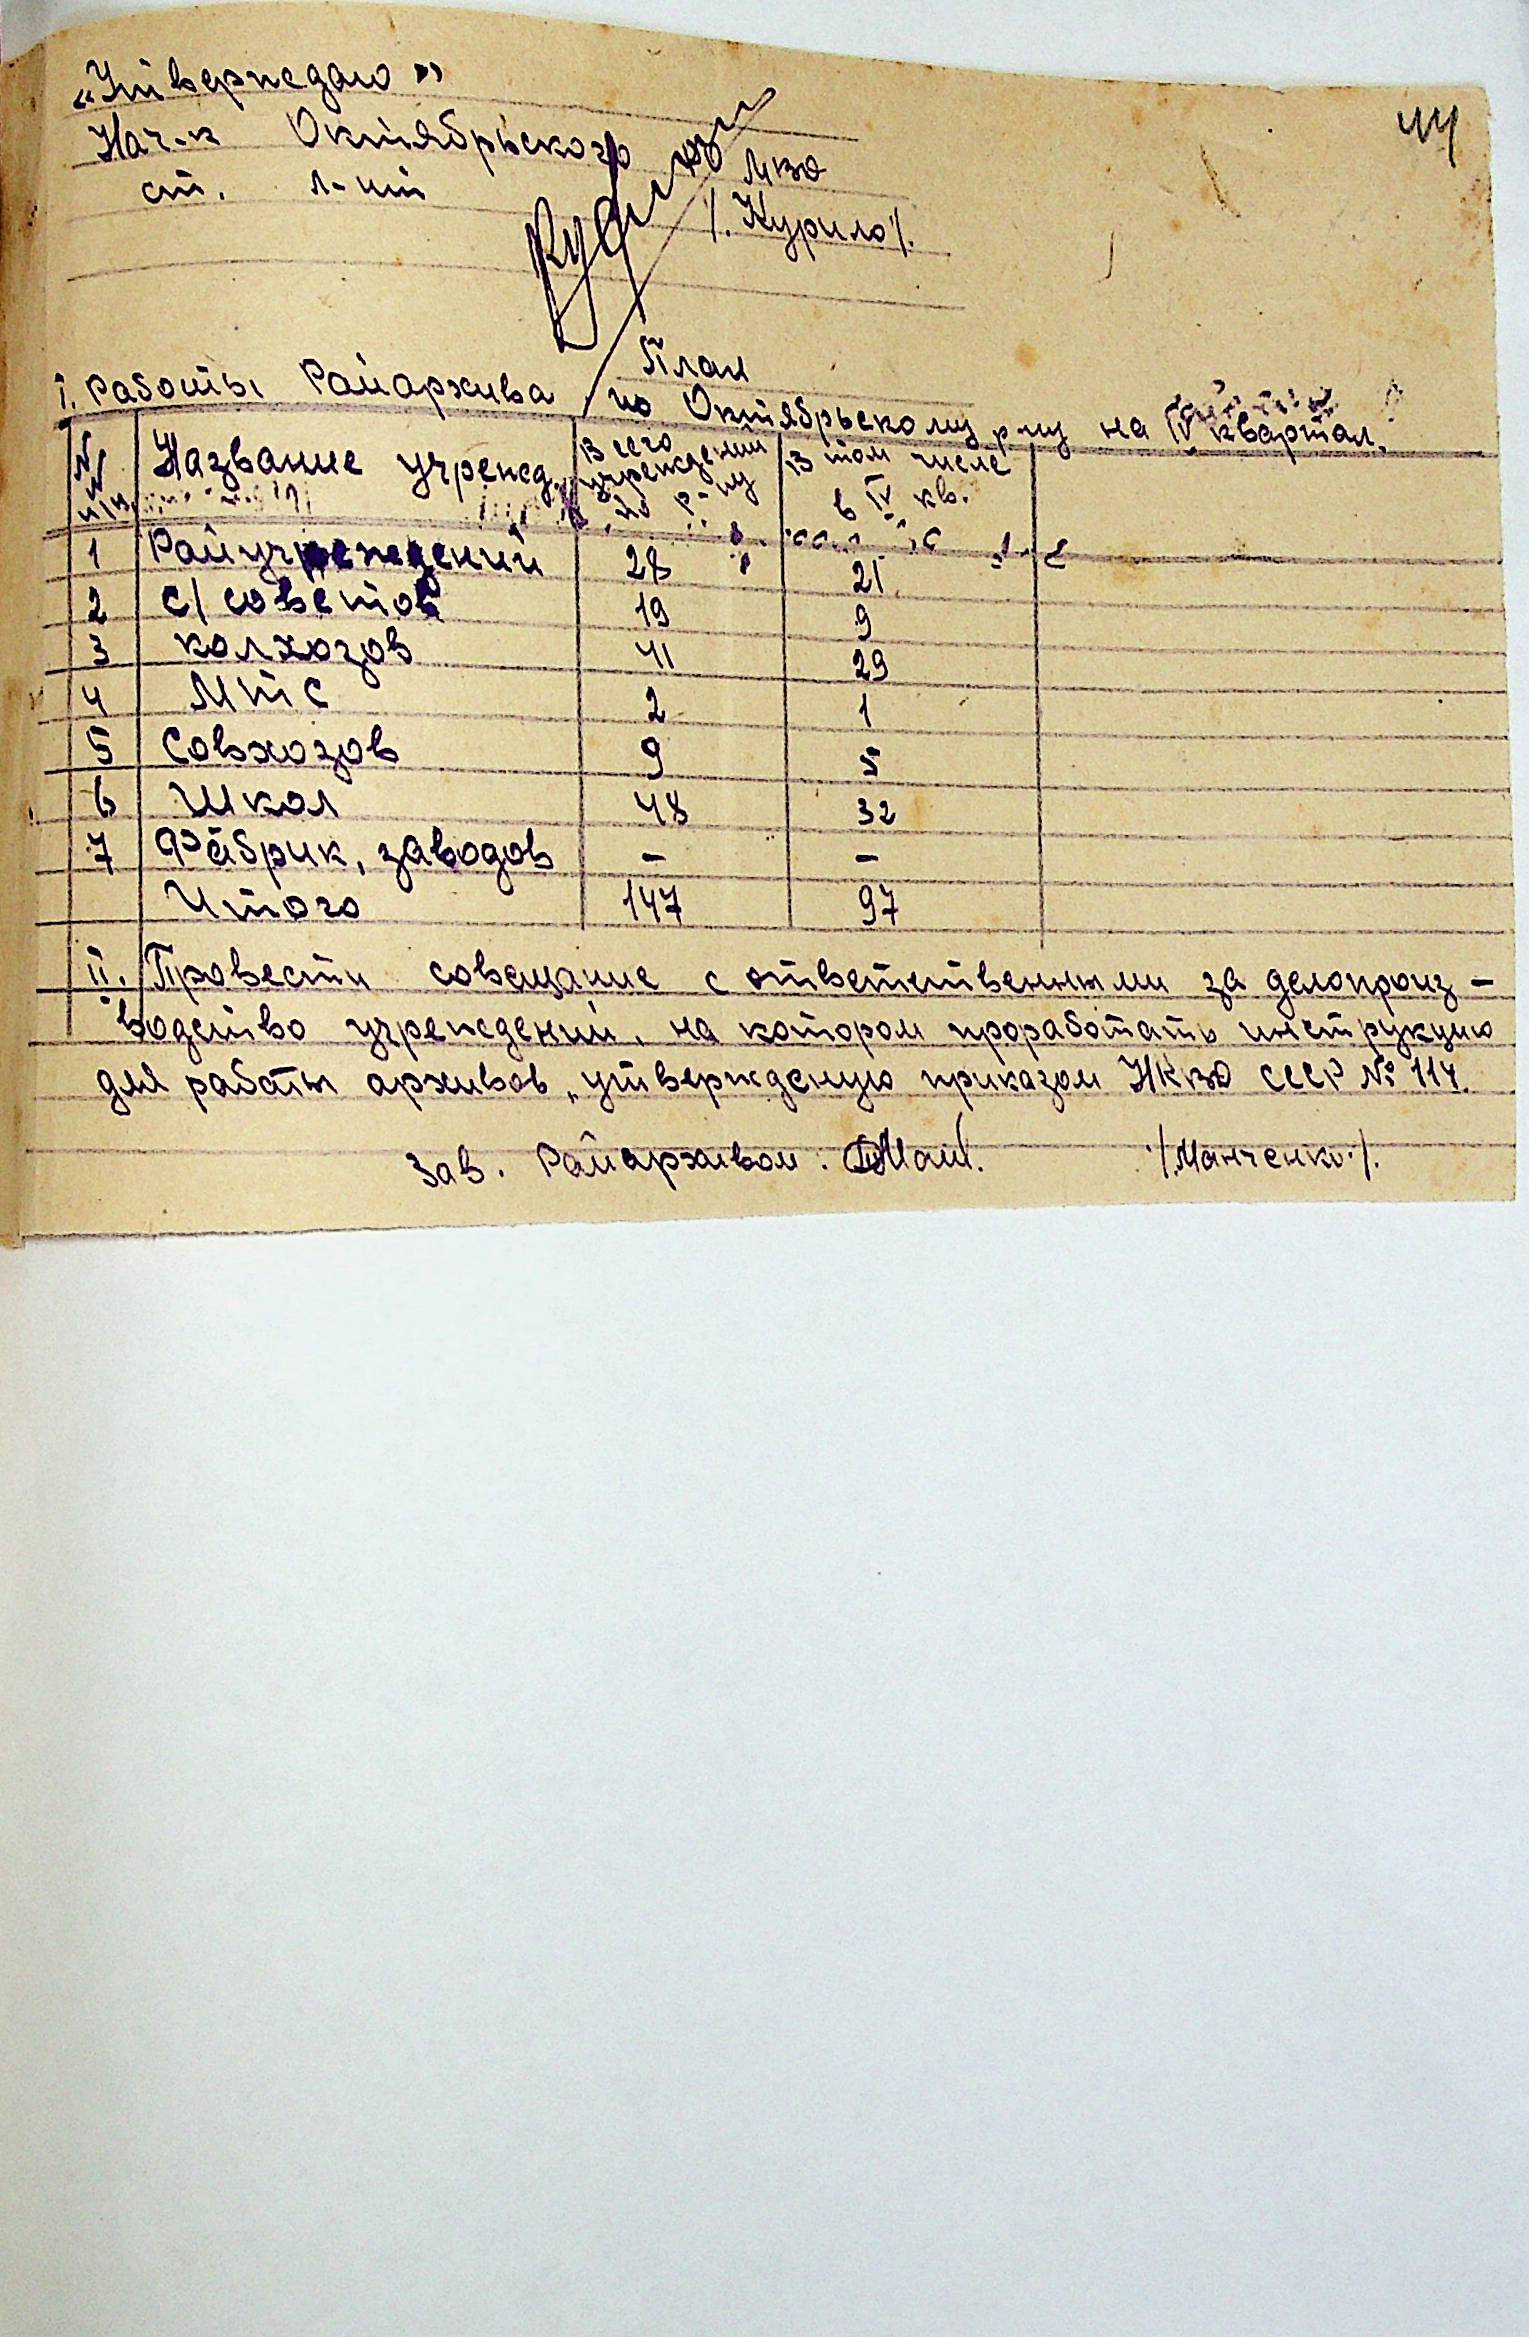 44
„Утверждаю"
Нач-к Октябрьского РО МВД
ст. л-нт /.Курило/.
План
I. работы Райархива по Октябрьскому р-ну на IV квартал.
№№ п/п Название учрежд. Всего учреждений по р-ну В том числе в IV кв.
1 Райучреждений 28 21
2 с/советов 19 9
3 колхозов 41 29
4 МТС 2 1
5 Совхозов 9 5
6 Школ 48 32
7 Фабрик, заводов – –
Итого 147 97
II. Провести совещание с ответственными за делопроиз-
водство учреждений, на котором проработать инструкцию
для работы архивов, утвержденую приказом НКВД СССР № 114.
Зав. Райархивом: /.Манченко./.